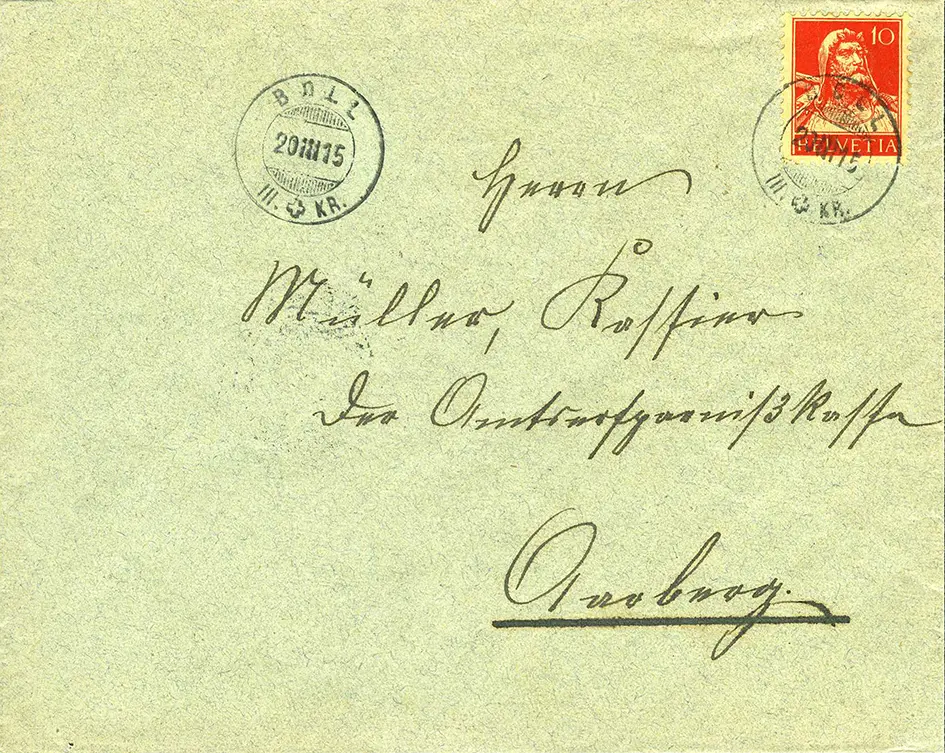 BOLL
20 III 15
III. KR.
10
HELVETIA
BOLL
20 III 15
III. KR.
Herrn
Müller, Kassier
der Amtsersparnißkasse
Aarberg.